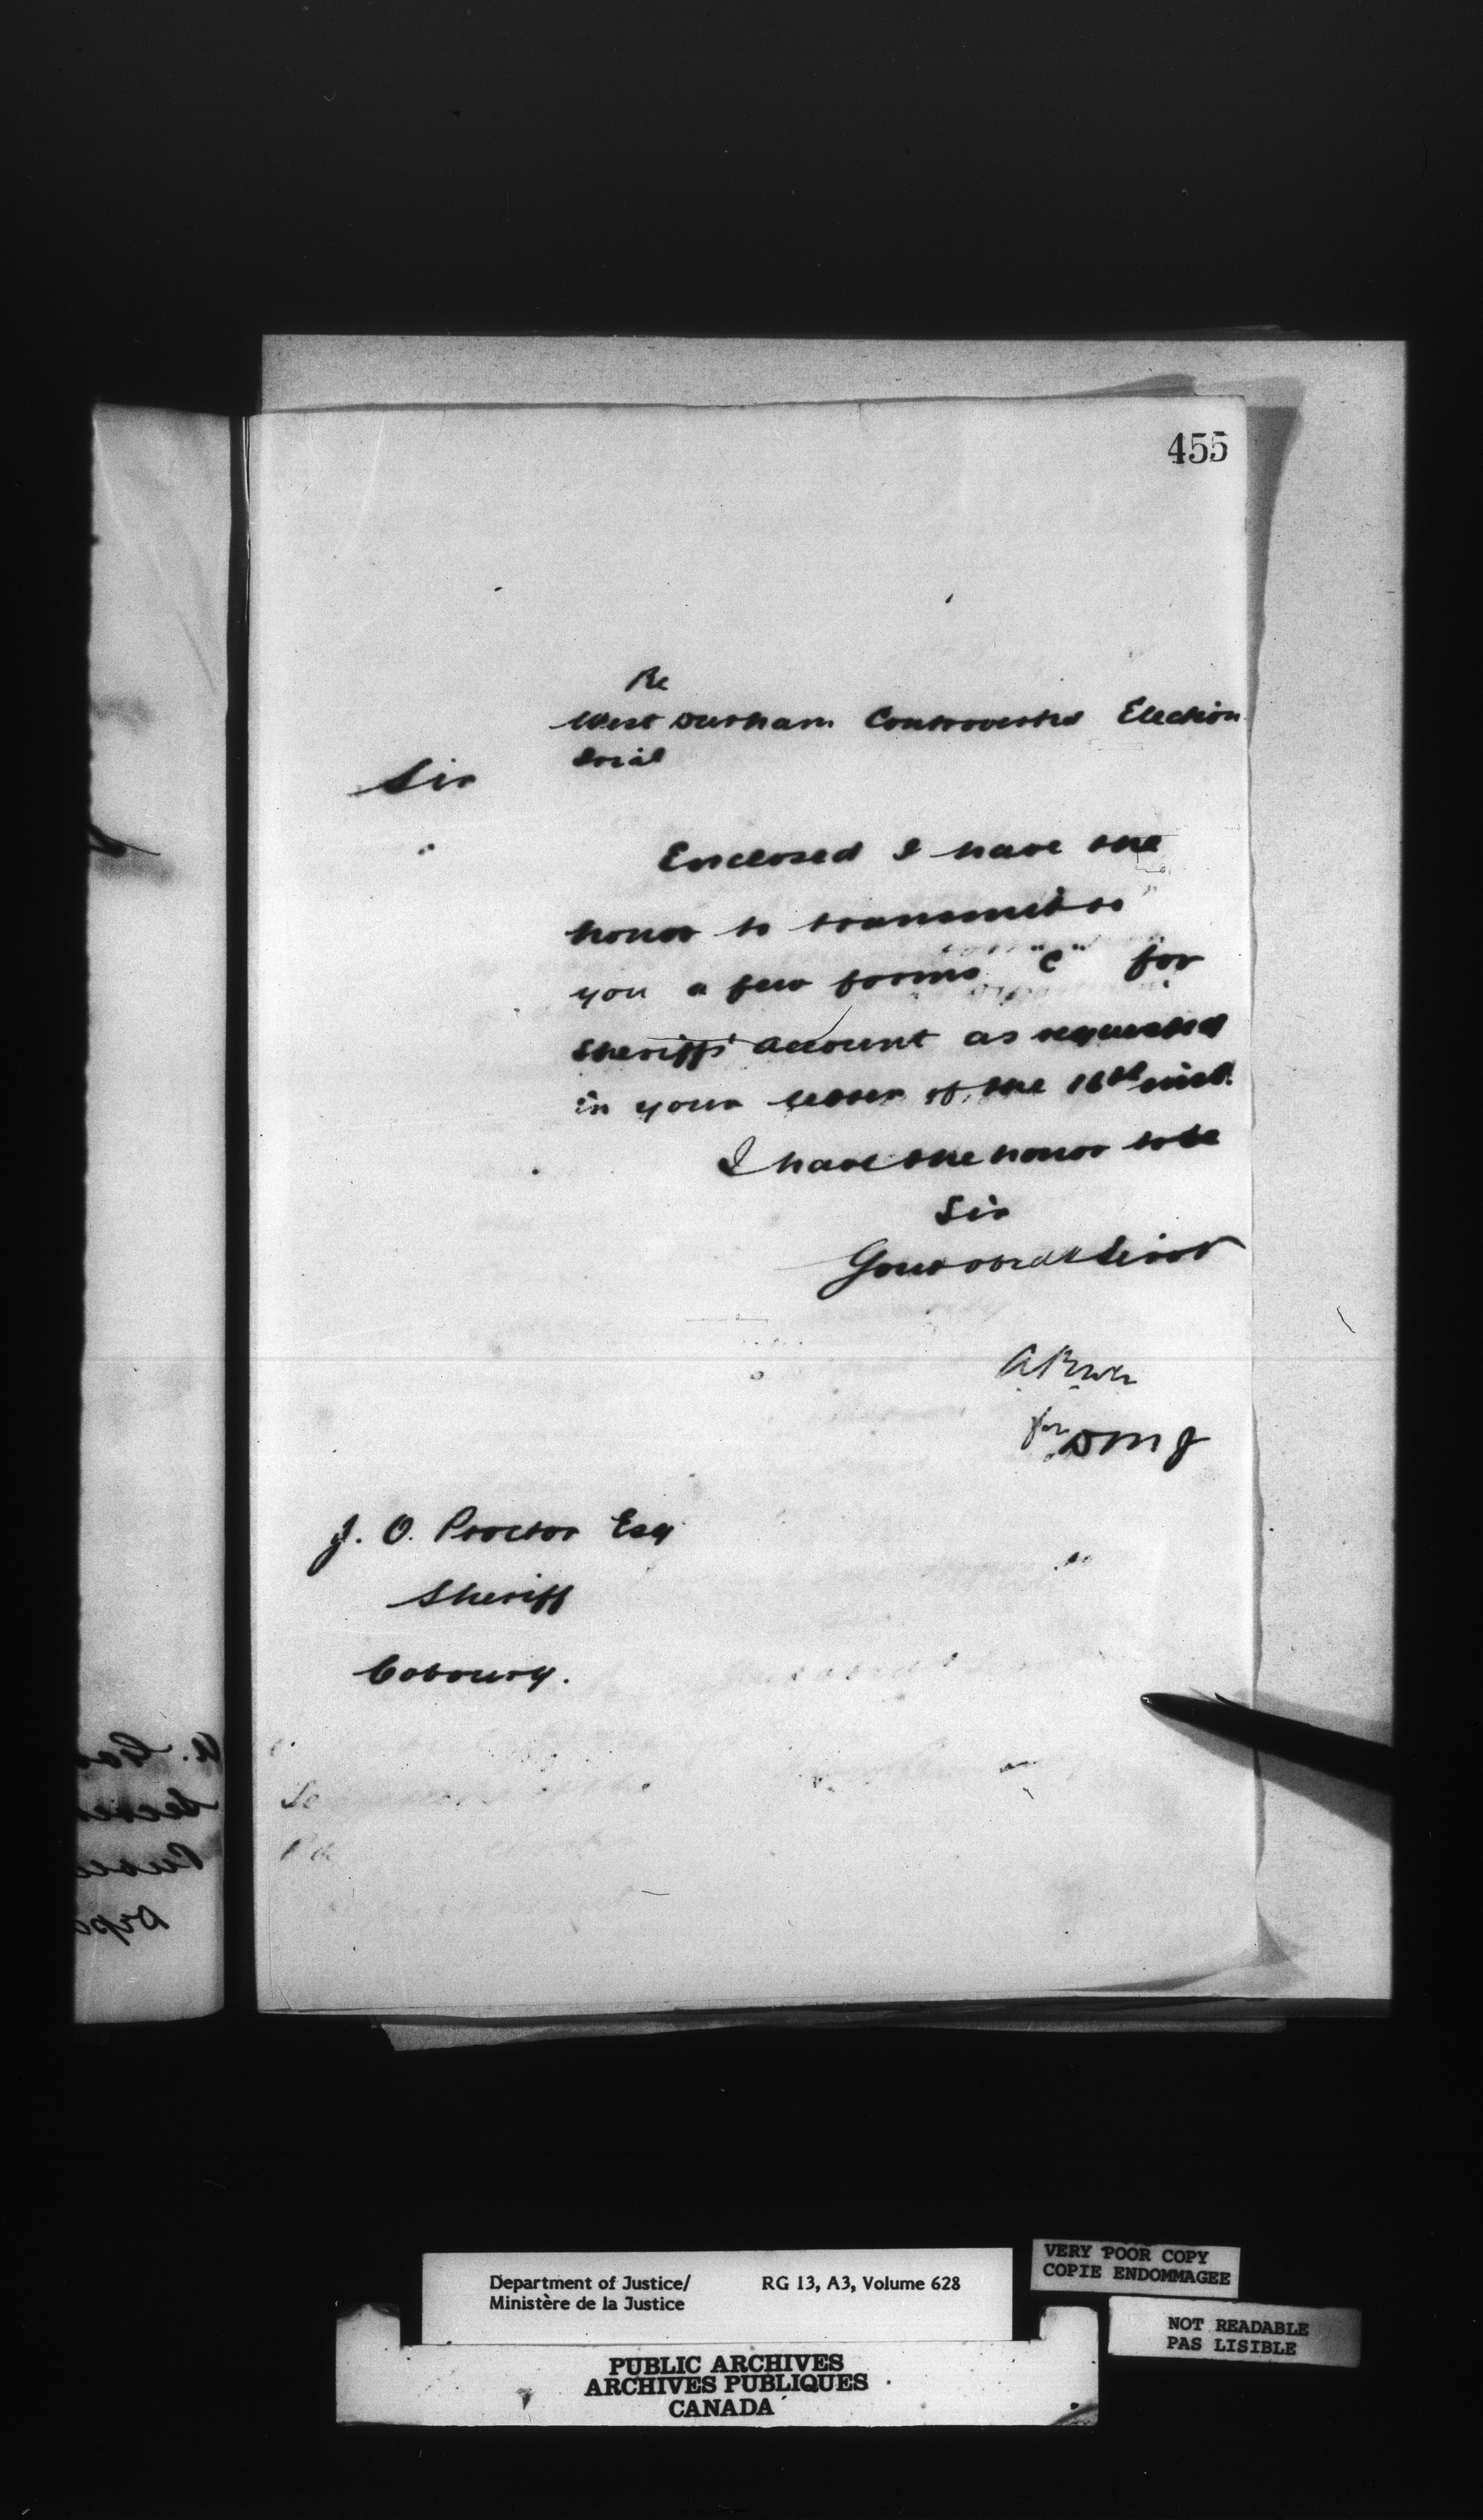 455
Re
West Durham Controverted Election
Trial
Sir
Enclosed I have the
honor to transmit to
you a few forms "C" for
Sheriffs account as requested
in your letter of the 16th inst.
I have the honor to be
Sir
Your obdt Servt
for DMJ
J. O. Proctor Esq
Sheriff
Cobourg.
Department of Justice/ RG 13, A3, Volume 628
Ministère de la Justice
VERY POOR COPY
COPIE ENDOMMAGEE
NOT READABLE
PAS LISIBLE
PUBLIC ARCHIVES
ARCHIVES PUBLIQUES
CANADA